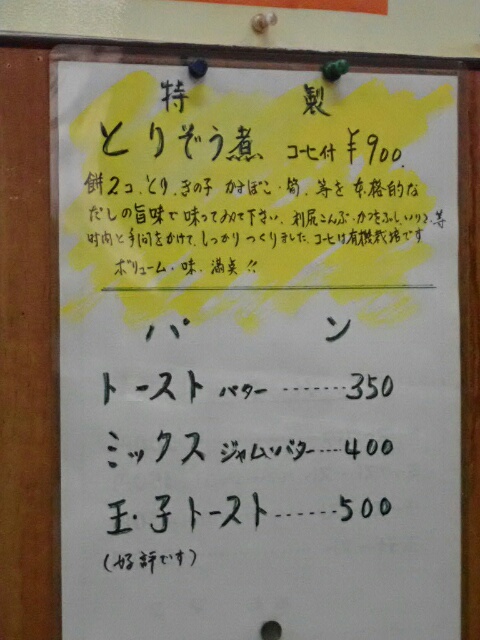 特製
とりぞう煮 コーヒ付 ¥900.
餅2コ、とり、きの子 かまぼこ・筍、等を本格的な
だしの旨味で味ってみて下さい。利尻こんぶ・かつをぶし、いりこ、等
時間と手間をかけて、しっかりつくりました。コーヒは有機栽培です
ボリューム・味、満点!!
パン
トースト バター ------- 350
ミックス ジャム・バター ---- 400
玉・子トースト ------ 500
(好評です)